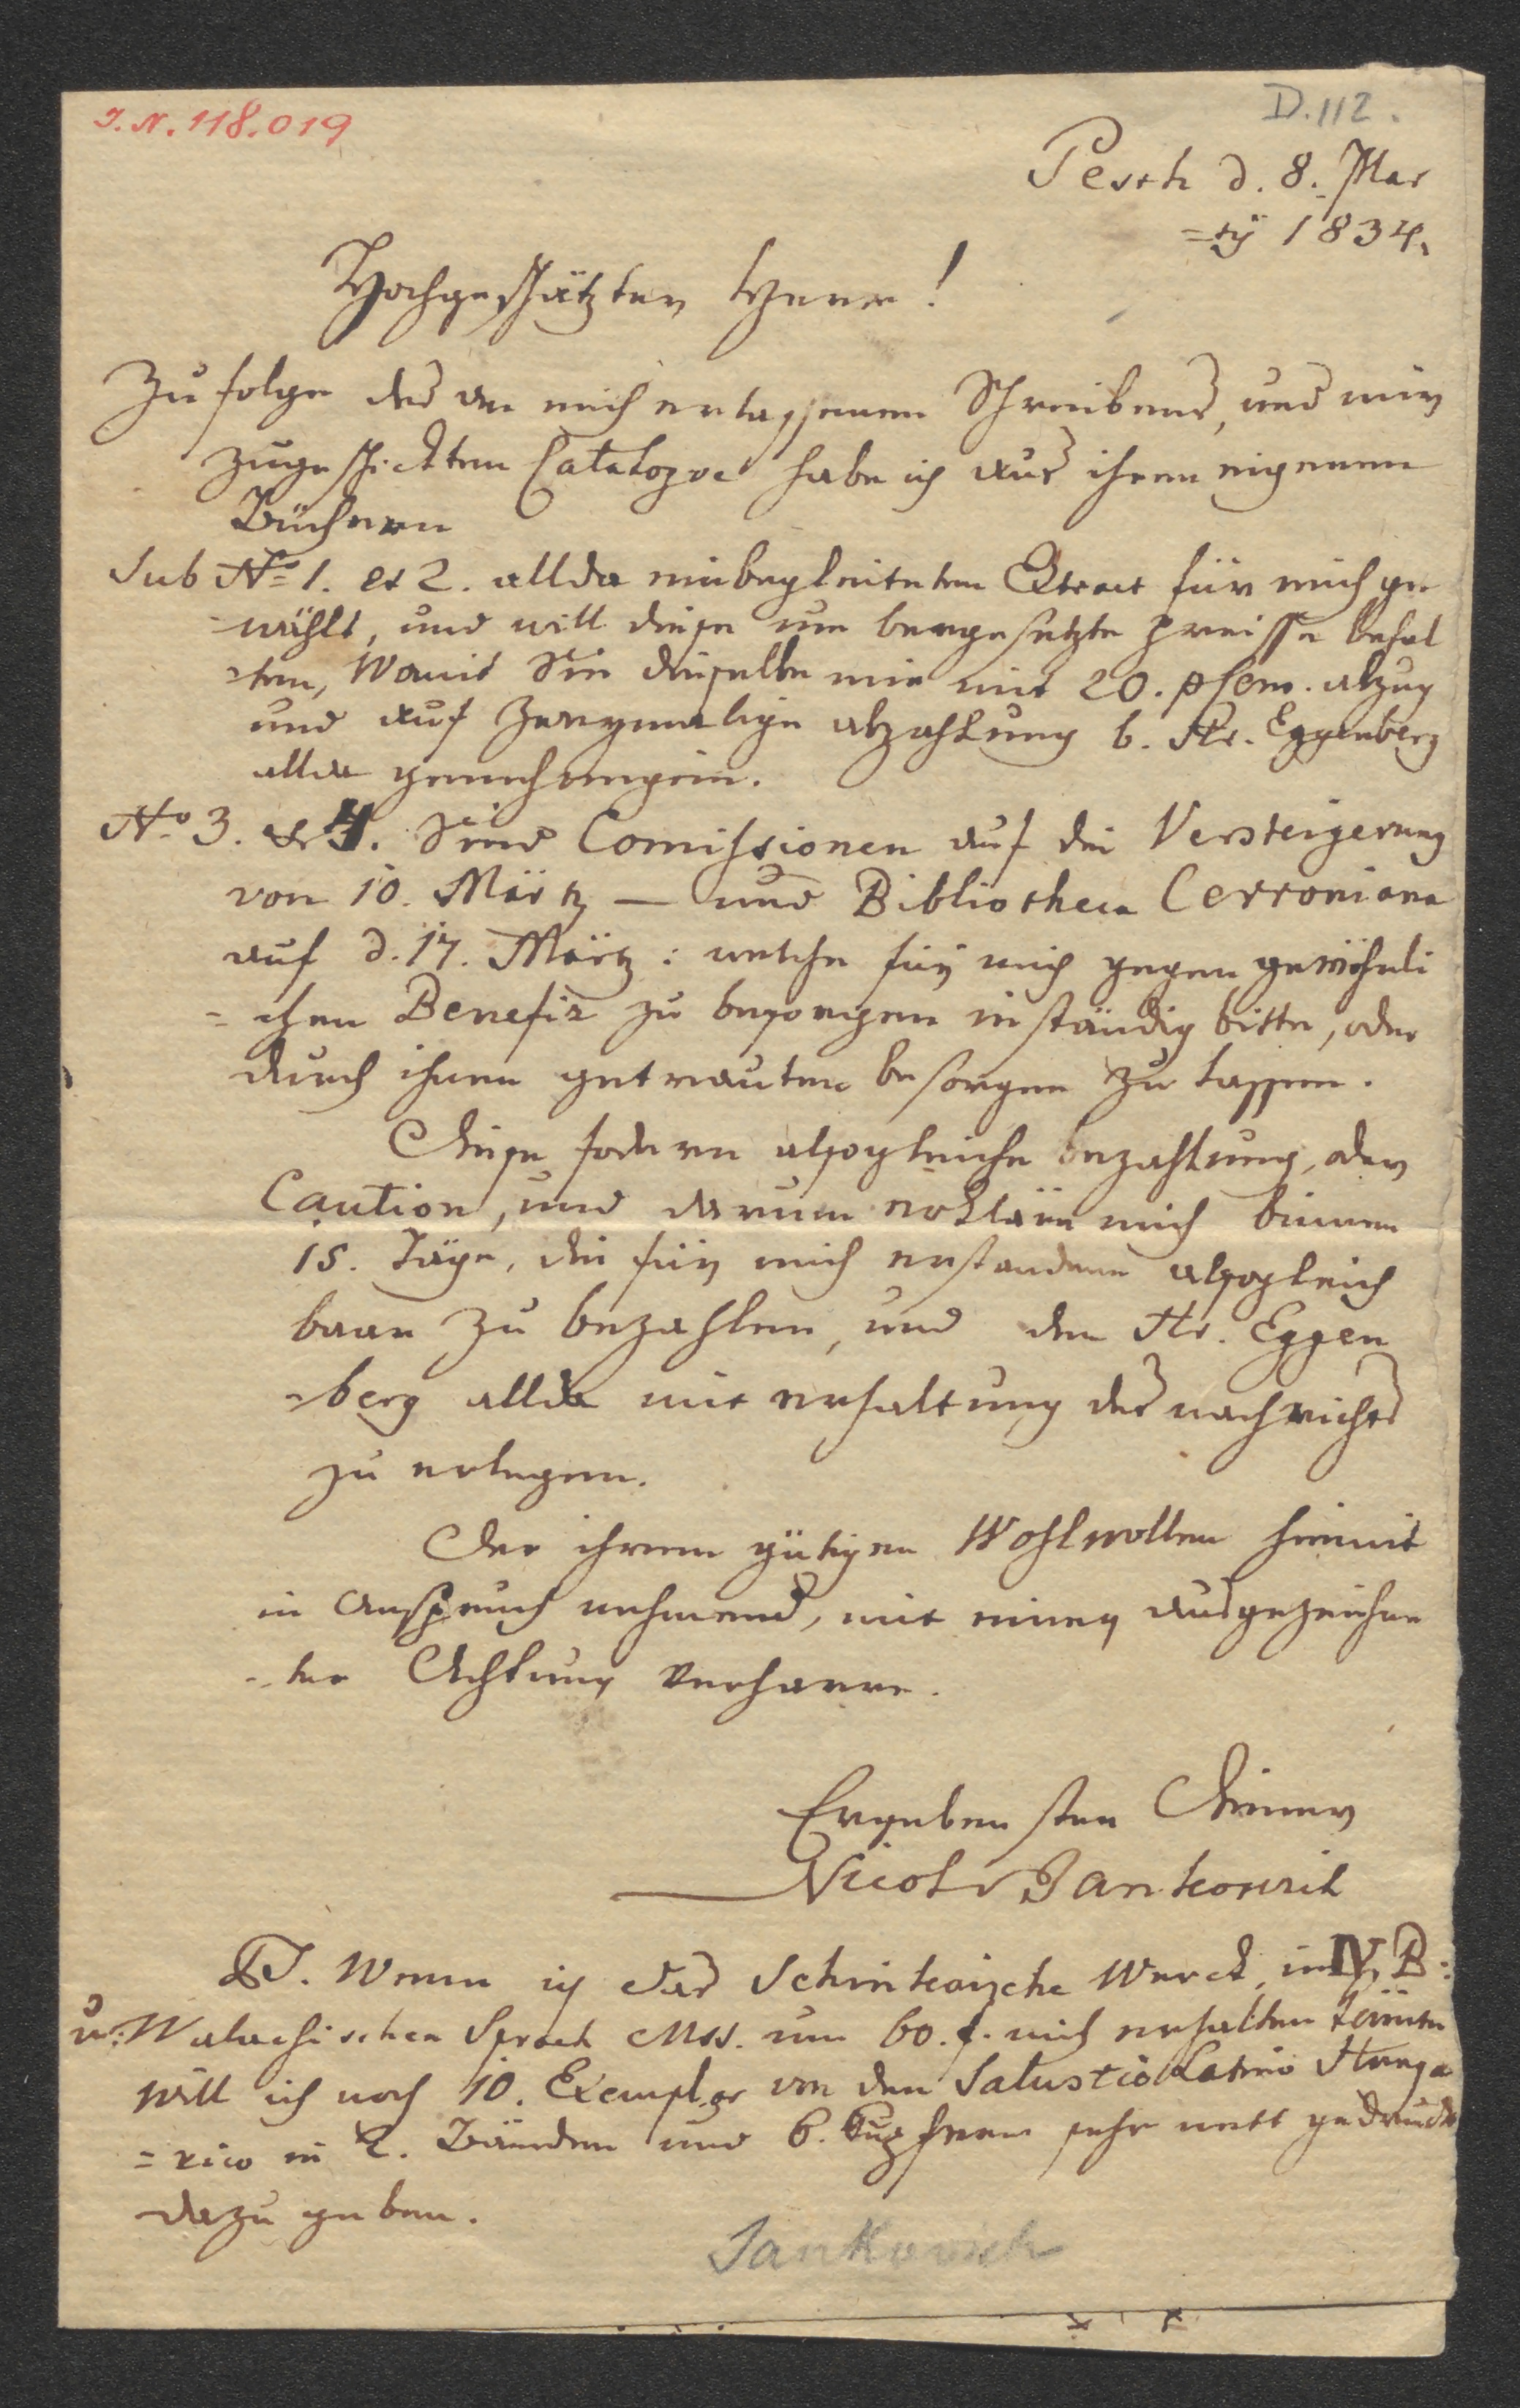 I.N. 118.019
D.112.
Pesth d. 8. Mar
=tÿ 1834.
Hochgeschätzter Herr!
Zu folge des an mich erlassenen Schreibens, und mir
zugeschickten Cataloge habe ich aus ihren eigenen
Büchern
Sub No 1. et 2. allda einbegleiteten Extract für mich ge
=wählt, und will diese um beygesetzte preisse behal
=ten, Womit Sie dieselbe mir mit 20. abzug
und auf abzahlung b. Hr. Eggenberg
allda
No 3. & 4. Sind Comissionen auf die Versteigerung
von 10. Märtz — und Bibliotheca Cerroniana
auf d. 17. Märtz: welche für mich gegen gewöhnli
=chen Benefiz zu besorgen inständig bitte, oder
durch ihnen getrauten besorgen zu lassen.
Diese fodern alsogleiche bezahlung, oder
Caution, und darum erkläre mich binnen
15. Täge, die für mich erstandene alsogleich
baar zu bezahlen, und den Hr. Eggen
=berg allda mit erhaltung des nachrichts
zu erlegen.
Der ihrem gütigen Wohlwollen hiemit
in Anspruch nehmend, mit einer ausgezeichne
=ter Achtung verharre.
Ergebensten Diener
Nicol v Jankowich
Wenn ich das Werck, in IV. B:
u: Walachischen Sprach Mss. um 60. f. mich erhalten könnte
will ich noch 10. Exemplar von den Salustio Latino Hunga
=rico in 2. Bänden und 6. Kupfern sehr nett gedruckt
dazu geben.
Jankovich